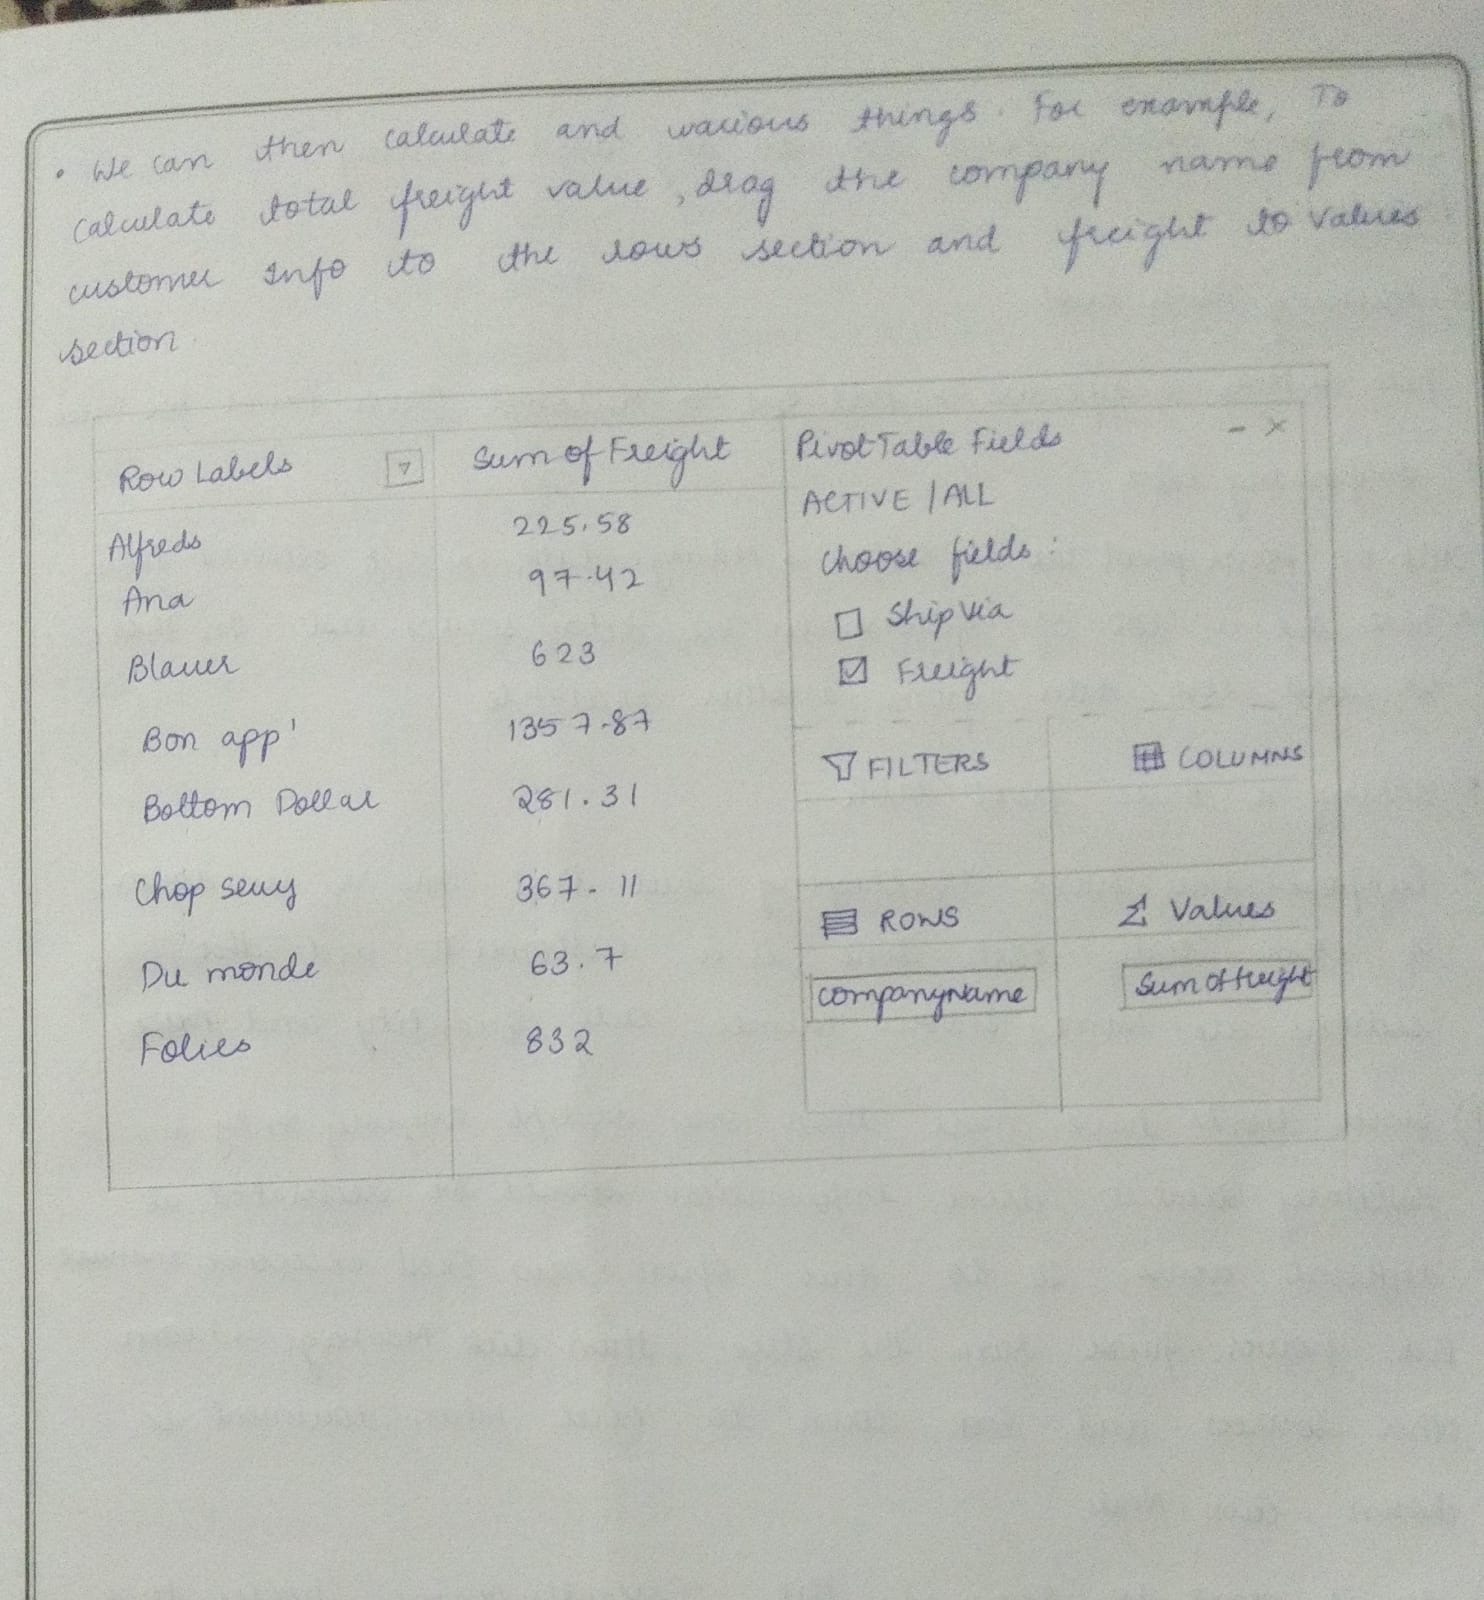 • We can then calculate and various things. For example, To
calculate total freight value, drag the company name from
customer Info to the rows section and freight to values
section.
Row Labels Sum of Freight
Alfreds 225.58
Ana 97.42
Blauer 623
Bon app' 1357.87
Bottom Dollar 281.31
Chop seuy 367.11
Du monde 63.7
Folies 832
PivotTable Fields - ×
ACTIVE | ALL
Choose fields:
Ship Via
Freight
FILTERS COLUMNS
ROWS Σ Values
CompanyName Sum of freight